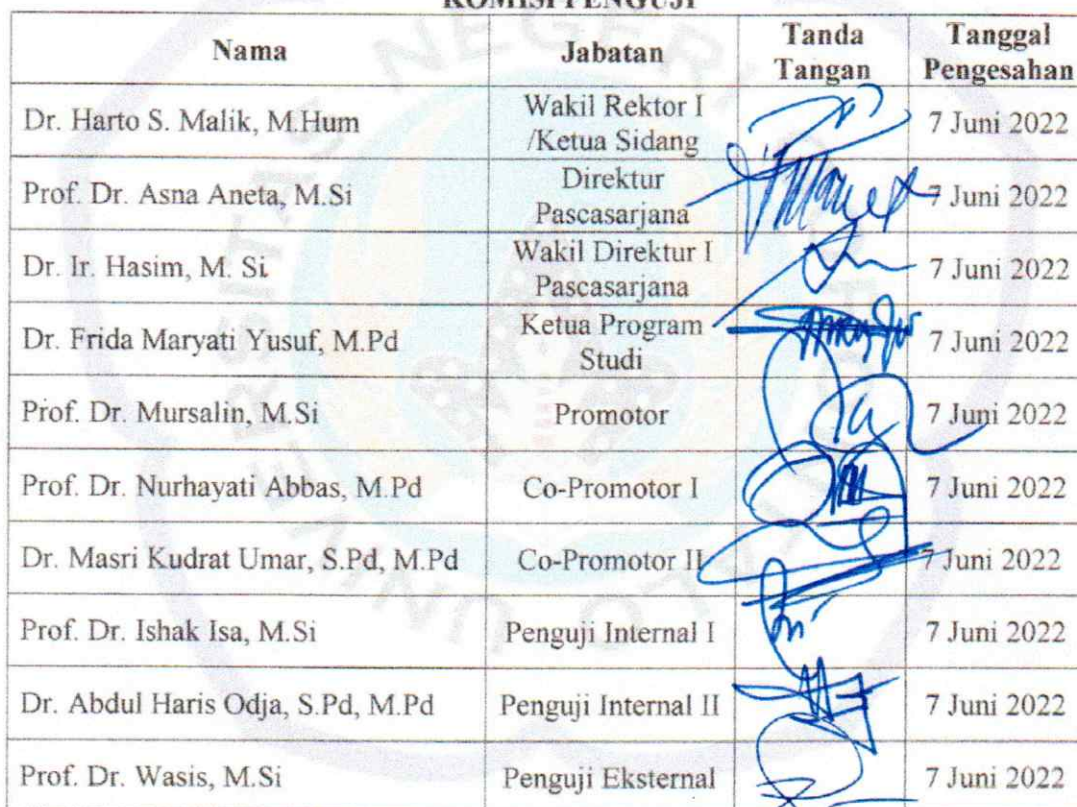 KOMISI PENGUJI
Nama Jabatan Tanda Tangan Tanggal Pengesahan
Dr. Harto S. Malik, M.Hum Wakil Rektor I /Ketua Sidang 7 Juni 2022
Prof. Dr. Asna Aneta, M.Si Direktur Pascasarjana 7 Juni 2022
Dr. Ir. Hasim, M. Si Wakil Direktur I Pascasarjana 7 Juni 2022
Dr. Frida Maryati Yusuf, M.Pd Ketua Program Studi 7 Juni 2022
Prof. Dr. Mursalin, M.Si Promotor 7 Juni 2022
Prof. Dr. Nurhayati Abbas, M.Pd Co-Promotor I 7 Juni 2022
Dr. Masri Kudrat Umar, S.Pd, M.Pd Co-Promotor II 7 Juni 2022
Prof. Dr. Ishak Isa, M.Si Penguji Internal I 7 Juni 2022
Dr. Abdul Haris Odja, S.Pd, M.Pd Penguji Internal II 7 Juni 2022
Prof. Dr. Wasis, M.Si Penguji Eksternal 7 Juni 2022